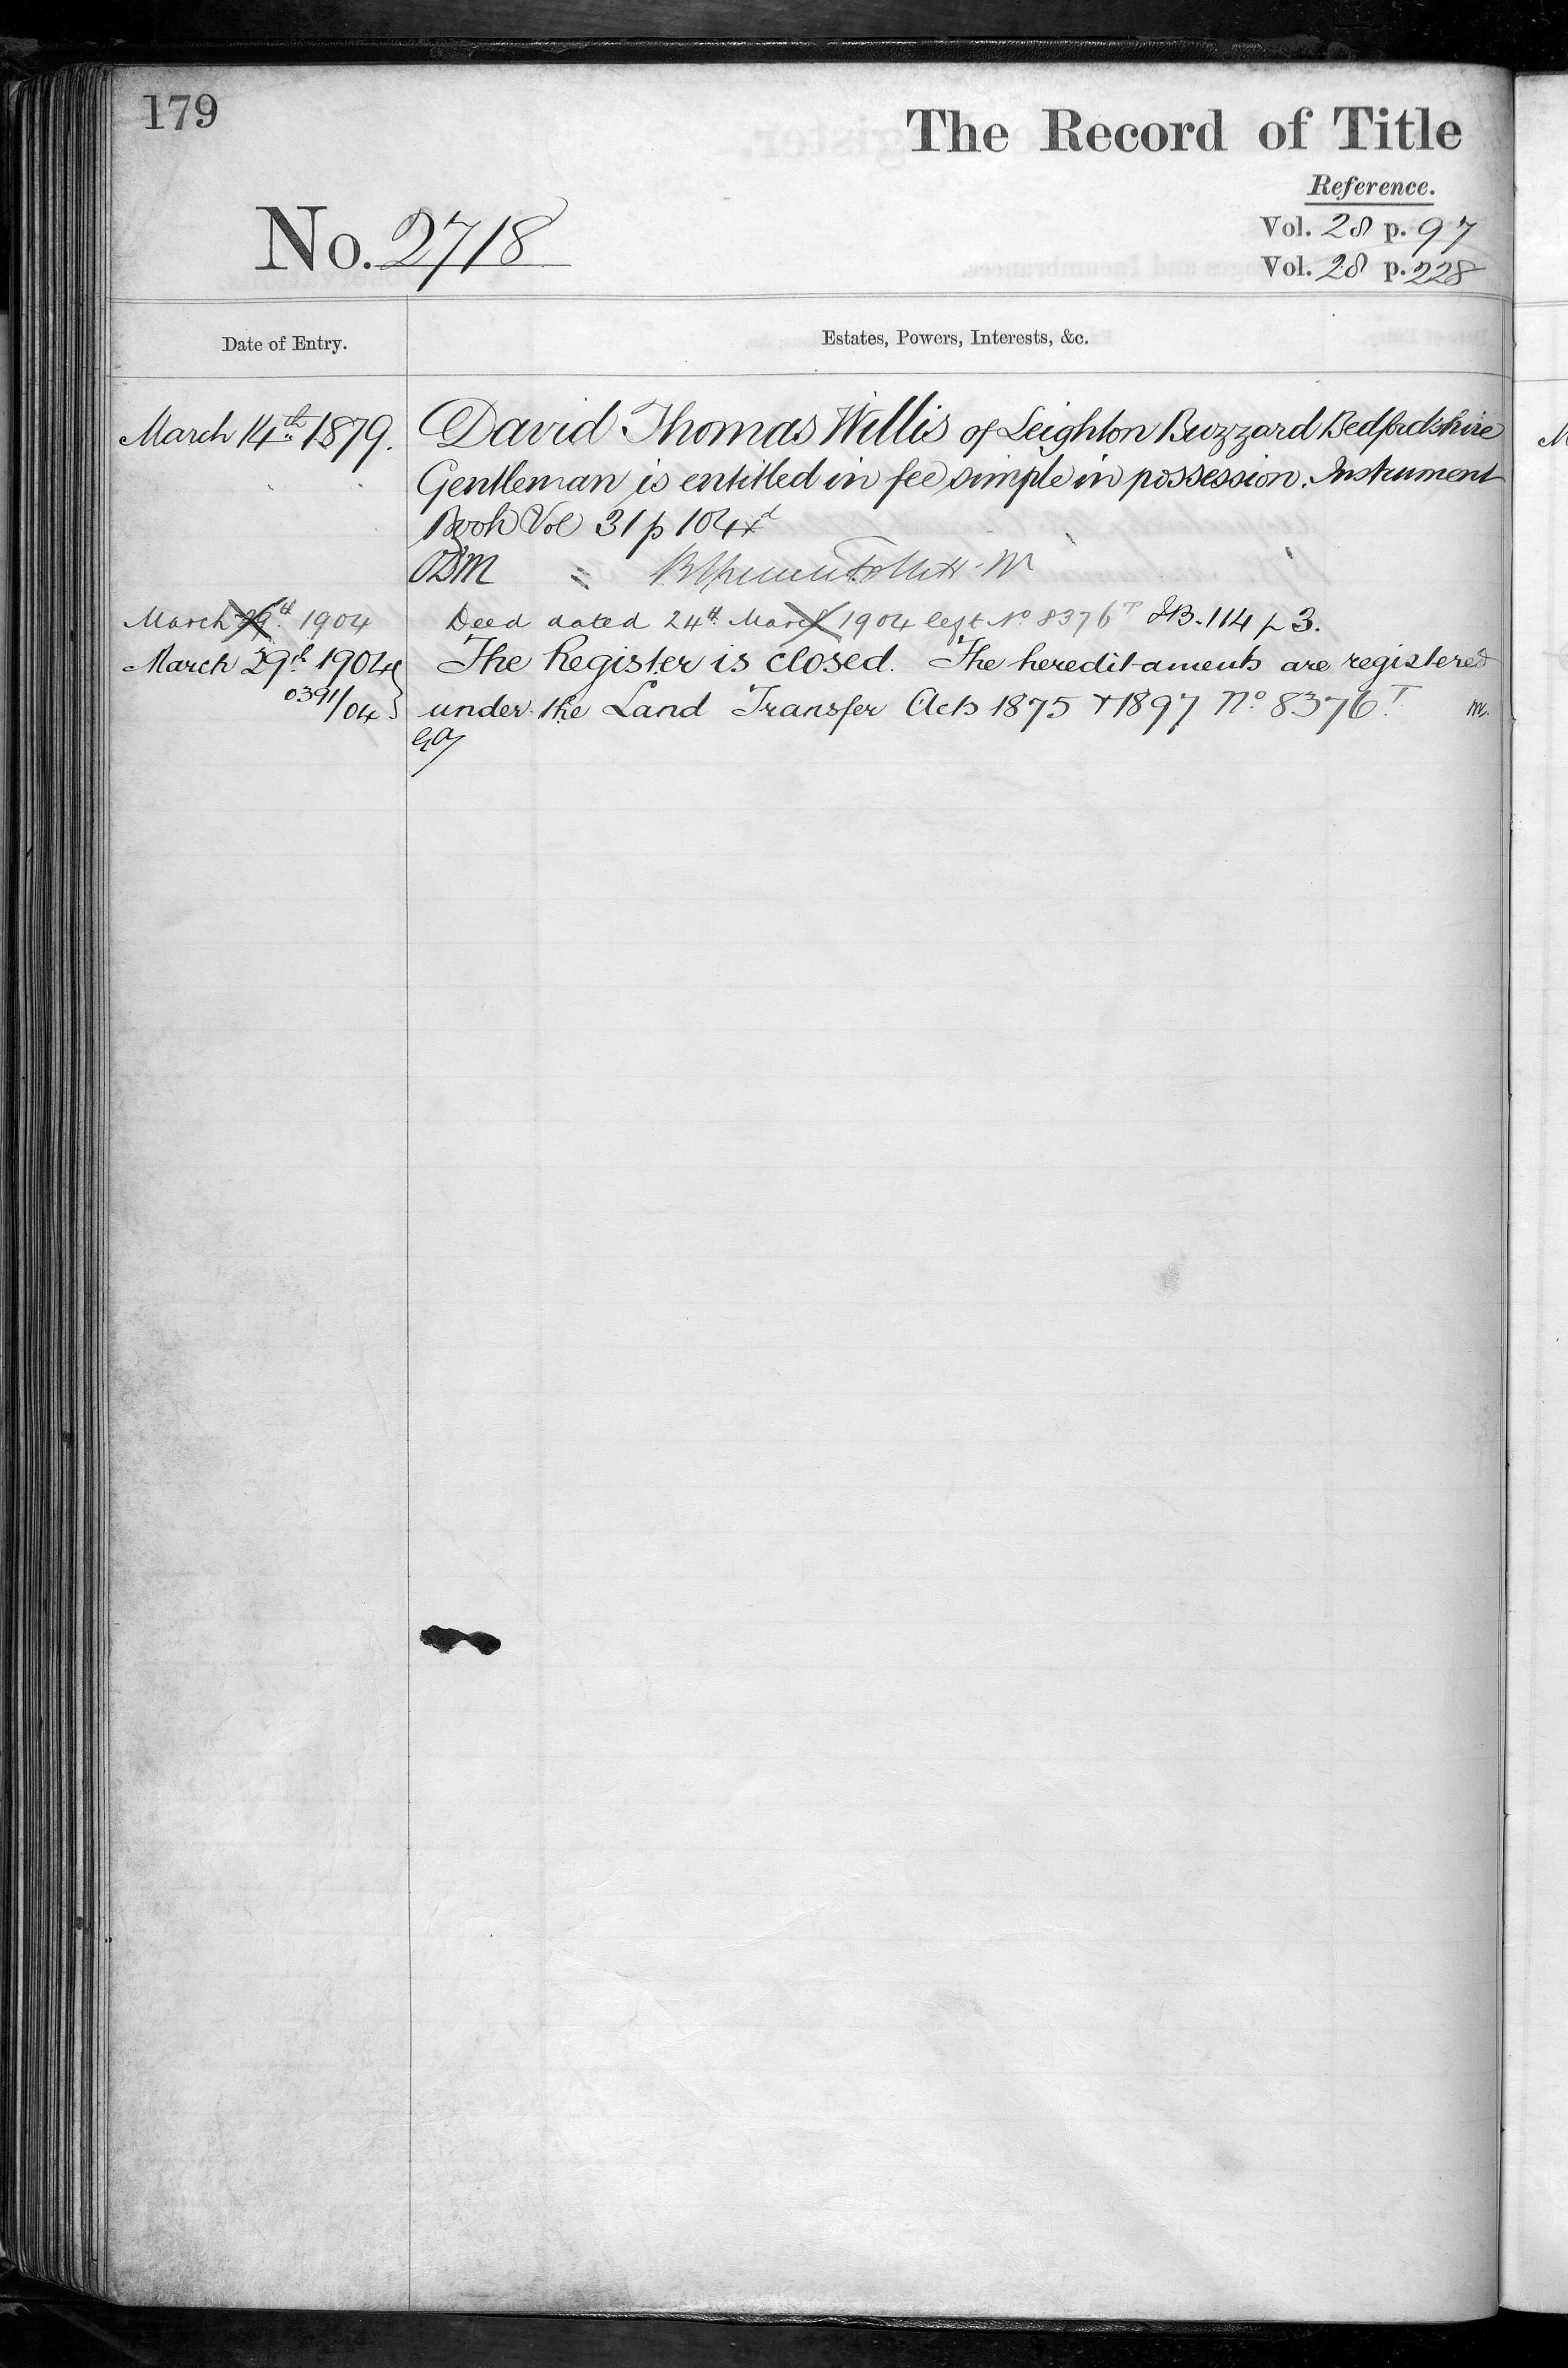 179
The Record of Title
Reference.
No. 2718
Vol. 28 p. 97
Vol. 28 p. 228
Date of Entry.
Estates, Powers, Interests, &c.
March 14th 1879.
David Thomas Willis of Leighton Buzzard Bedfordshire
Gentleman is entitled in fee simple in possession. Instrument
Book Vol 31 p 104
March 29th 1904
Deed dated 24th March 1904 left No 8376T IB. 114 p 3.
March 29th 1904
0391/04
The Register is closed. The hereditaments are registered
under the Land Transfer Acts 1875 + 1897 No 8376T